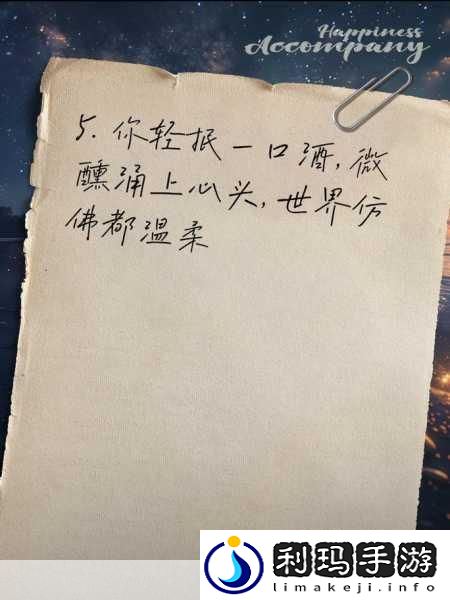 Happiness
Accompany
5. 你轻抿一口酒,微
醺涌上心头,世界仿
佛都温柔
利玛手游
limakeji.info